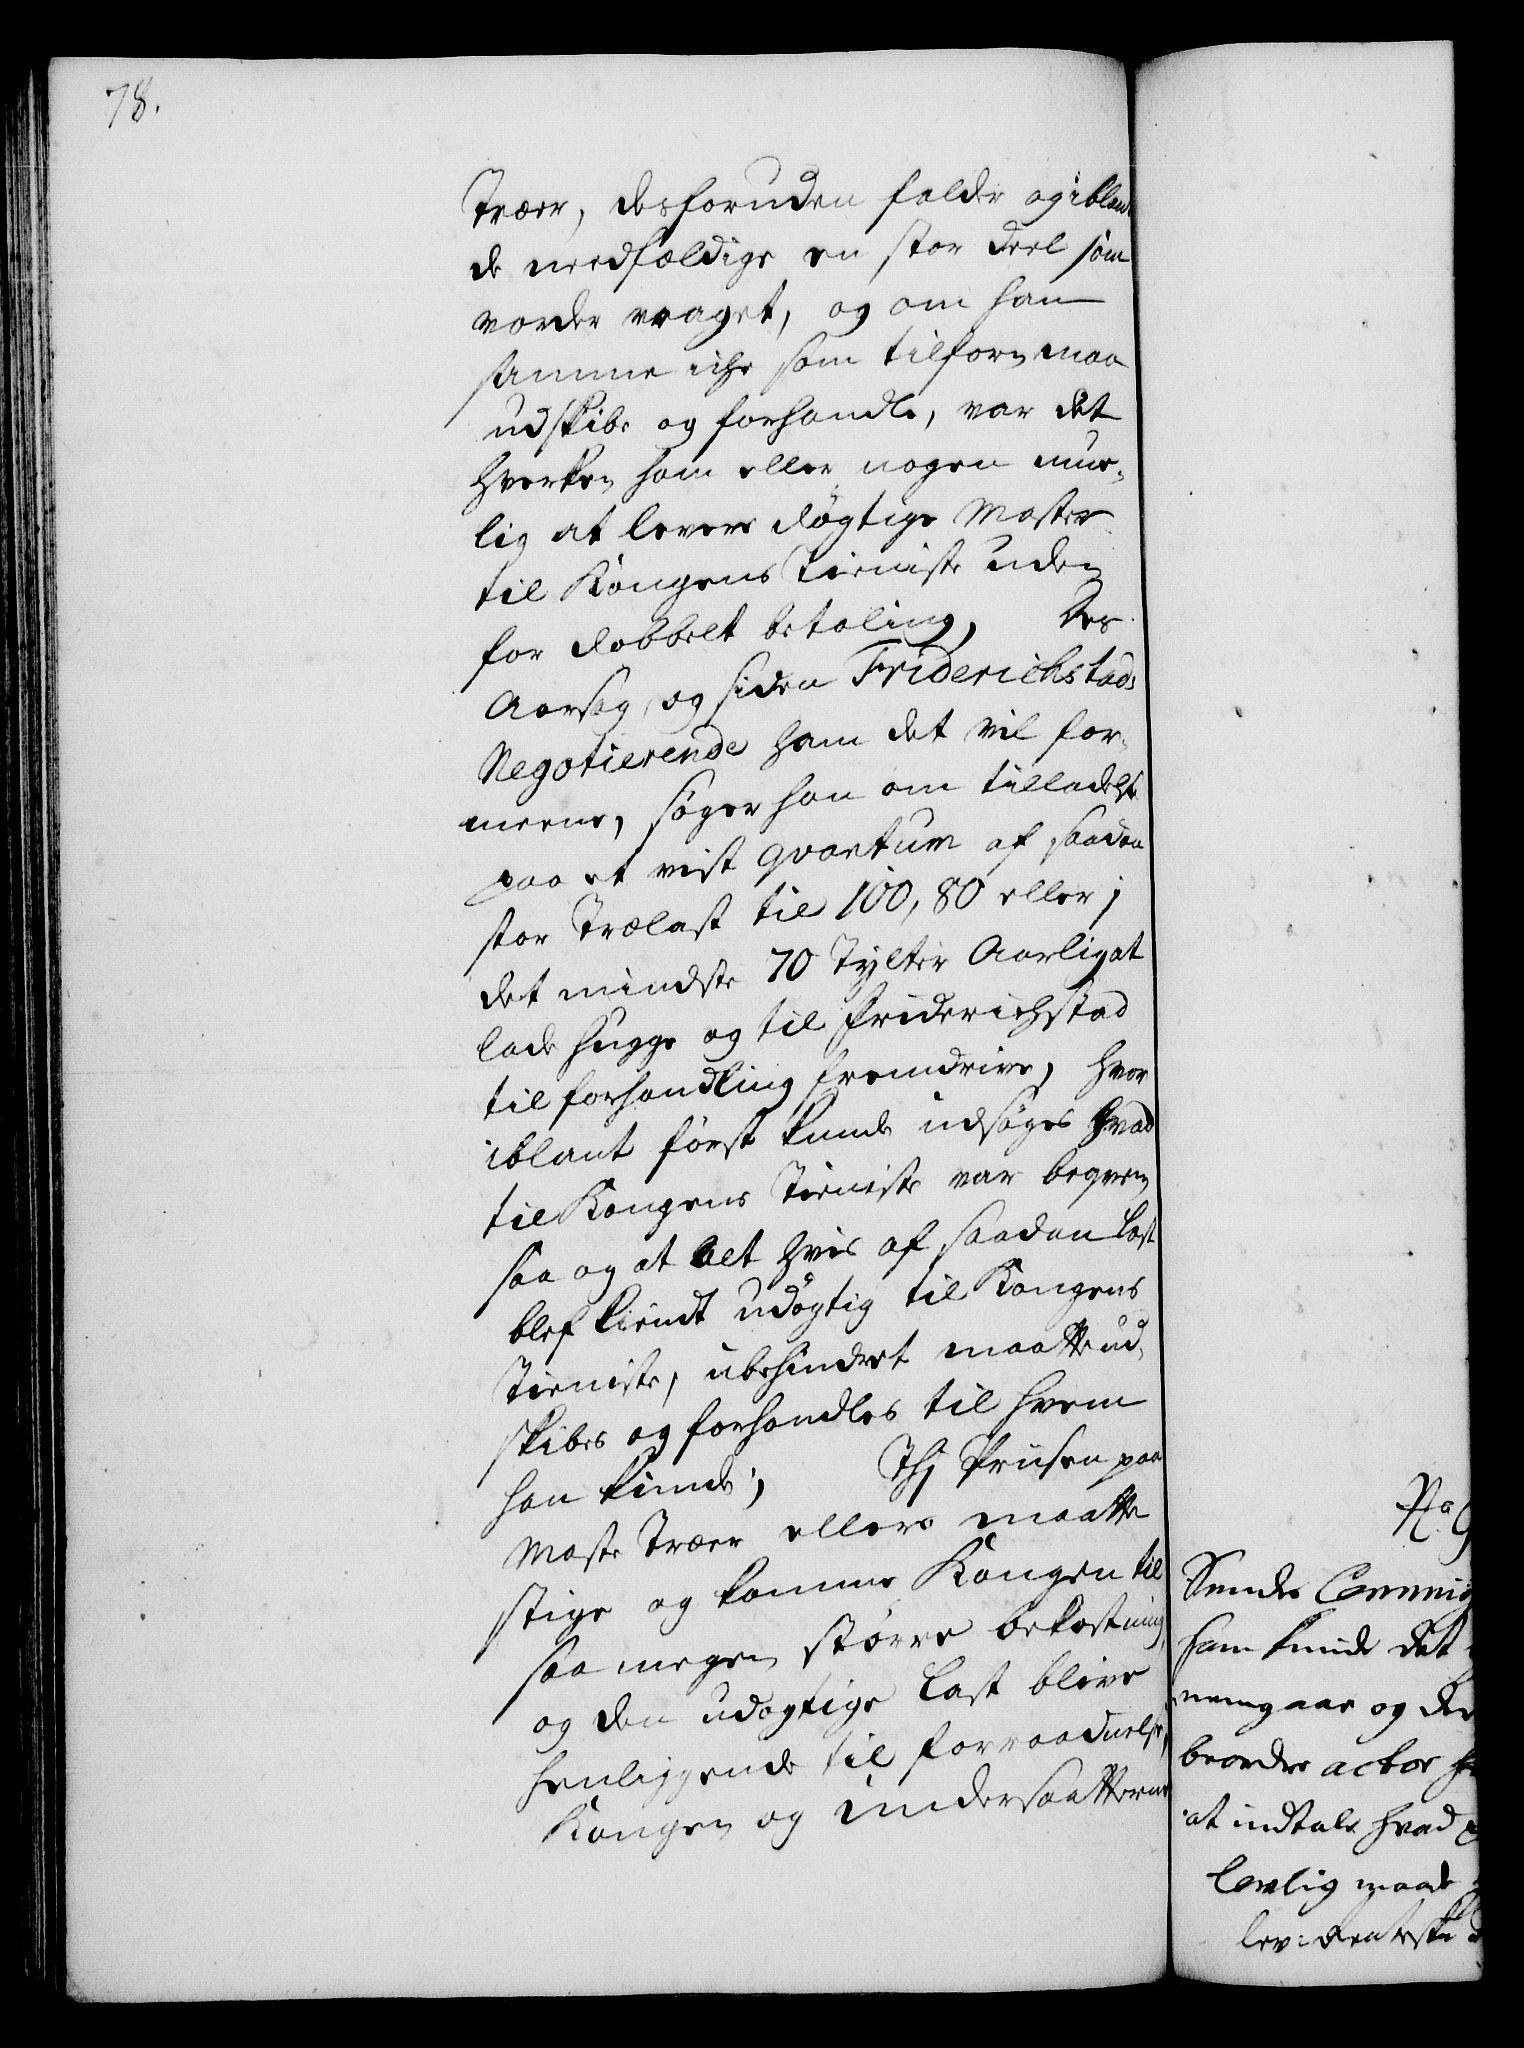 78.
Træer, desforuden falder og iblant
de needfældige en stor deel som
vorder vraget, og om han
samme icke som tilforn maa
udskibe og forhandle, var det
hverken ham eller nogen mue-
lig at levere døgtige Master
til Kongens Tieniste uden
for dobbelt betaling, Des
Aarsag, og siden Friderichstads
Negotierende ham det vil for-
meene, søger han om tilladelse
paa et vist qvantum af saadan
stor Trælast til 100, 80 eller j
det mindste 70 Tylter Aarlig at
lade hugge og til Friderichstad
til forhandling fremdrive, hvor
iblant først kunde udsøges hvad
til Kongens Tieniste var beqvem
saa og at alt hvis af saadan Last
blef kiendt udøgtig til Kongens
Tieniste, ubehindret maatte ud-
skibes og forhandles til hvem
han kunde, Thj Prisen paa
Maste Træer ellers maatte
stige og komme Kongen til
saa megen større bekostning,
og den udøgtige Last blive
henliggende til forraadnelse,
Kongen og Undersaatterne
Sendes Commis
ham kunde det
nemgaae og der
beordre actor
at indtale hvad
lovlig maade